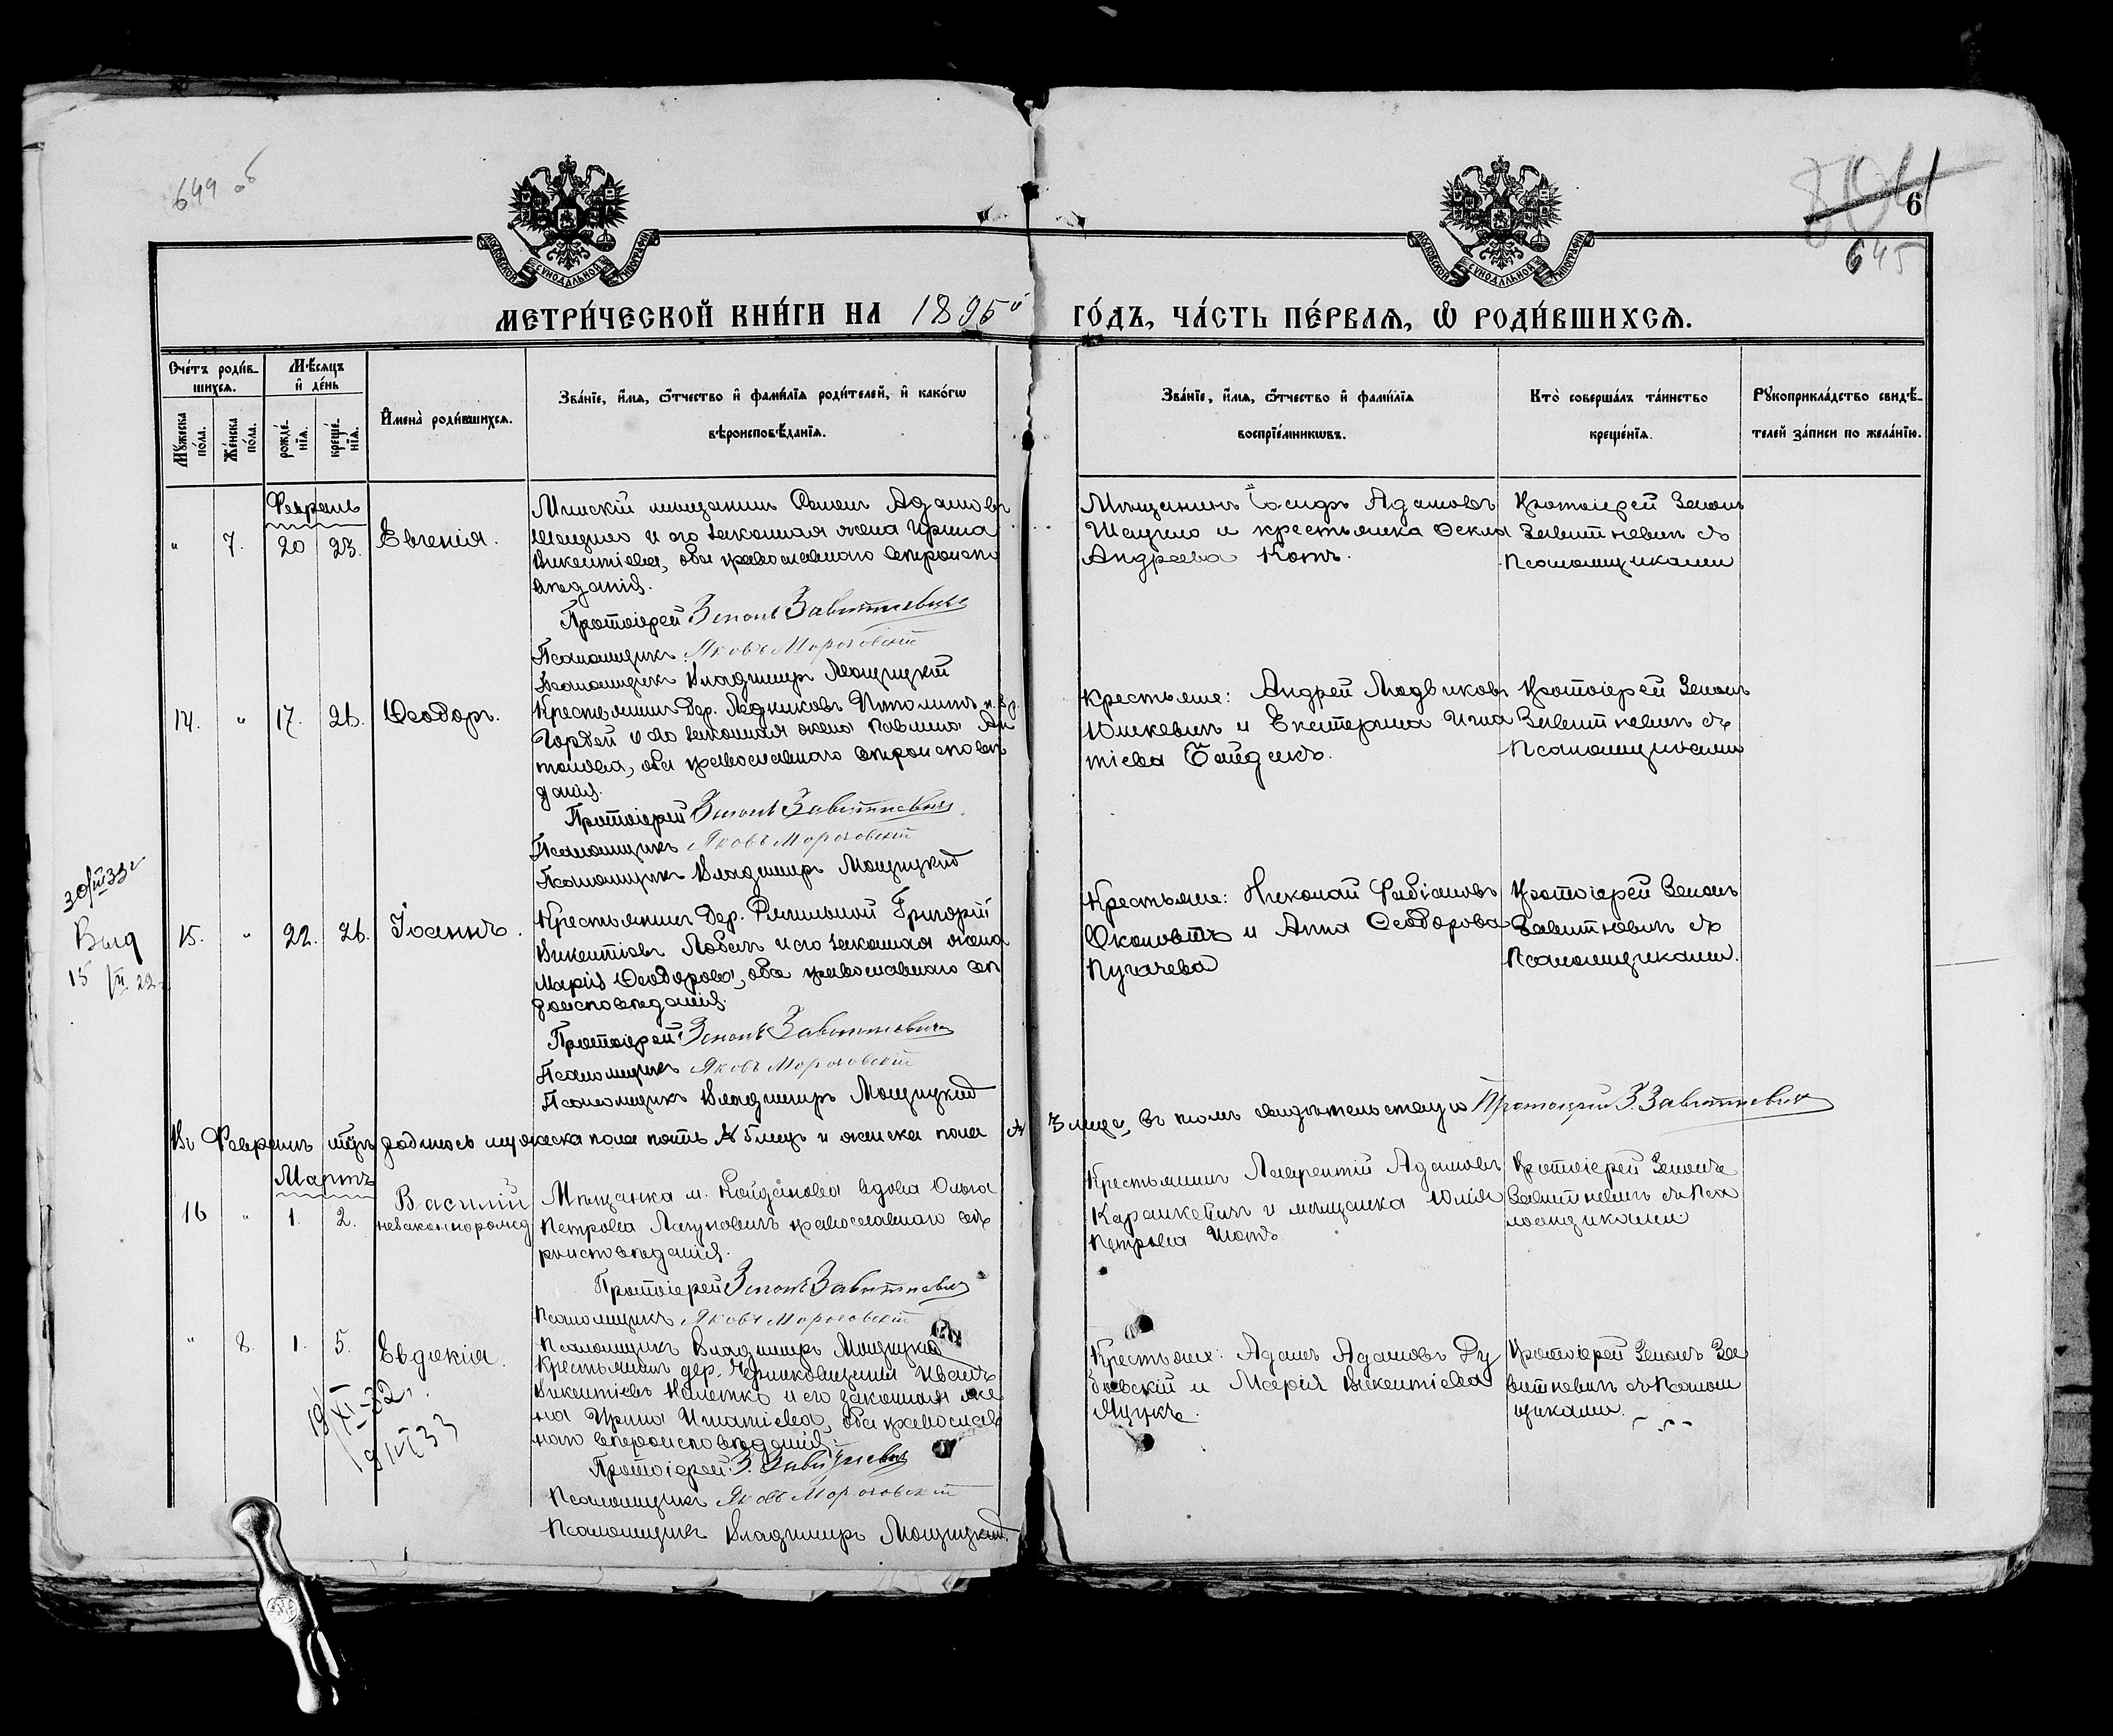 649 об
6
645
МОСКОВСКОЙ СУНОДАЛЬНОЙ ТИПОГРАФІИ
МОСКОВСКОЙ СУНОДАЛЬНОЙ ТИПОГРАФІИ
МЕТРИ́ЧЕСКОЙ КНИ́ГИ НА 1895й ГО́ДЪ, ЧА́СТЬ ПЕ́РВАѦ, Ѡ РОДИ́ВШИХСѦ.
Сче́тъ роди́вшихсѧ.
Мѣ́сѧцъ и де́нь
Мꙋ́жеска по́ла.
Же́нска по́ла.
рожде́нїѧ.
креще́нїѧ.
Имена̀ роди́вшихсѧ.
Зва́нїе, и́мѧ, ѻ҆́тчество и фами́лїѧ роди́телей, и како́гѡ
вѣроисповѣ́данїѧ.
Зва́нїе, и́мѧ, ѻ҆́тчество и фами́лїѧ
воспрїе́мникѡвъ.
Кто̀ соверша́лъ та́инство
креще́нїѧ.
Рꙋкоприкла́дство свидѣ́-
телей за́писи по жела́нїю.
Февраль
" 7. 20 23. Евгенія.
Минскій мѣщанинъ Семенъ Адамовъ
и его законная жена Ирина
Викентіева, оба православнаго вѣроиспо
вѣданія.
Протоіерей Зенонъ Завитневичъ
Псаломщикъ Яковъ Мороговскій
Псаломщикъ Владиміръ Мощицкій
Мѣщанинъ Іосифъ Адамовъ
и крестьянка Ѳекла
Андреева Котъ.
Протоіерей Зенонъ
Завитневичъ съ
псаломщиками
14. " 17. 26. Ѳеодоръ.
Крестьянинъ дер.
Гордей и его законная жена Павлина Ан
тонова, оба православнаго вѣроисповѣ
данія.
Протоіерей Зенонъ Завитневичъ
Псаломщикъ Яковъ Мороговскій
Псаломщикъ Владиміръ Мощицкій
Крестьяне: Андрей Людвиковъ
Юшкевичъ и Екатерина Игна
тіева
Протоіерей Зенонъ
Завитневичъ съ
псаломщиками
30/IV 33г
Выд
15
15. " 22. 26. Іоаннъ.
Крестьянинъ дер. Григорій
Викентіевъ и его законная жена
Марія Ѳеодорова, оба православнаго вѣ
роисповѣданія.
Протоіерей Зенонъ Завитневичъ
Псаломщикъ Яковъ Мороговскій
Псаломщикъ Владиміръ Мощицкій
Крестьяне: Николай Фабіановъ
и Анна Ѳеодорова
Пугачева
Протоіерей Зенонъ
Завитневичъ съ
псаломщиками.
Въ Февралѣ мѣсяцѣ родилось мужеска пола пять № 5 лицъ и женска пола № 3 лица, въ томъ свидѣтельствую Протоіерей З. Завитневичъ
Мартъ
16 " 1. 2. Василій
незаконнорожд
Мѣщанка м. Койданова вдова Ольга
Петрова православнаго вѣ
роисповѣданія.
Протоіерей Зенонъ Завитневичъ
Псаломщикъ Яковъ Мороговскій
Псаломщикъ Владиміръ Мощицкій
Крестьянинъ Лаврентій Адамовъ
и мѣщанка Юлія
Петрова
Протоіерей Зенонъ
Завитневичъ съ пса
ломщиками
" 8. 1. 5. Евдокія.
19/XI-32г.
Крестьянинъ дер. Черниковщины Иванъ
Викентіевъ и его законная же
на Ирина Игнатіева, оба православ
наго вѣроисповѣданія.
Протоіерей З. Завитневичъ
Псаломщикъ Яковъ Мороговскій
Псаломщикъ Владиміръ Мощицкій.
Крестьяне: Адамъ Адамовъ Ду
бовскій и Марія Викентіева
Протоіерей Зенонъ За
витневичъ съ псалом
щиками.